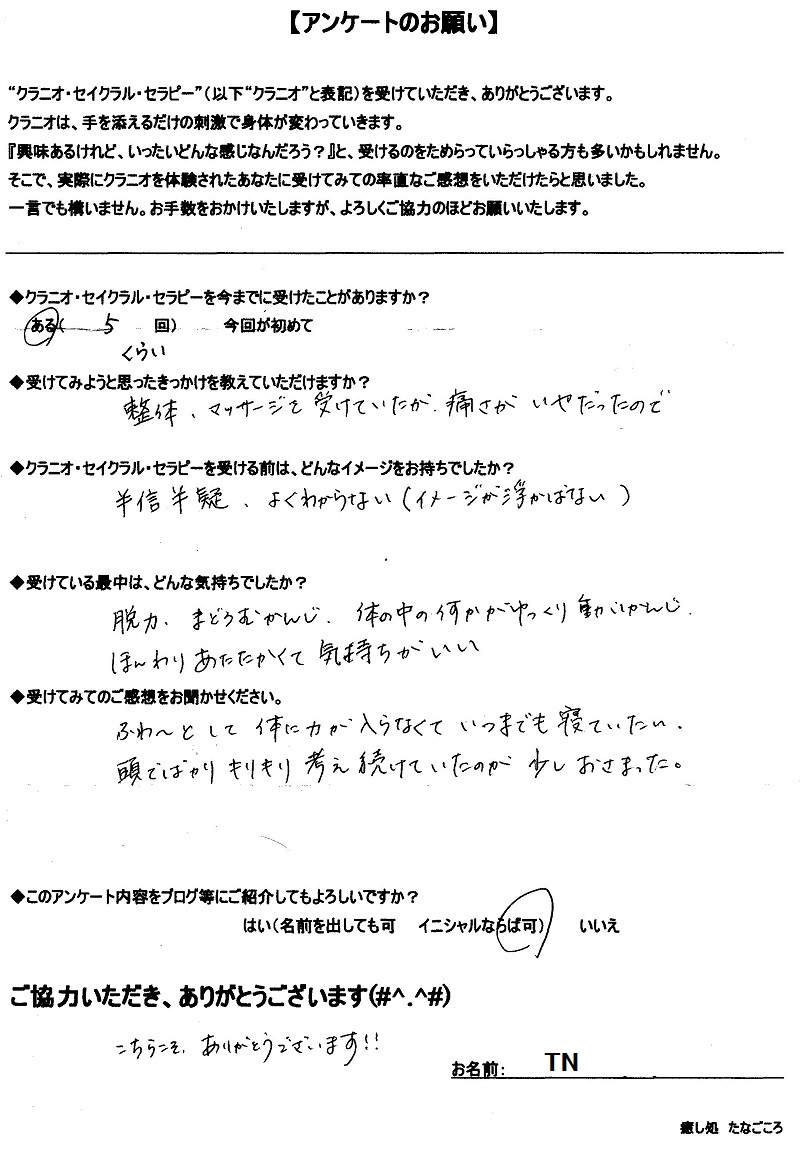 【アンケートのお願い】
“クラニオ・セイクラル・セラピー”（以下“クラニオ”と表記）を受けていただき、ありがとうございます。
クラニオは、手を添えるだけの刺激で身体が変わっていきます。
『興味あるけれど、いったいどんな感じなんだろう？』と、受けるのをためらっていらっしゃる方も多いかもしれません。
そこで、実際にクラニオを体験されたあなたに受けてみての率直なご感想をいただけたらと思いました。
一言でも構いません。お手数をおかけいたしますが、よろしくご協力のほどお願いいたします。
◆クラニオ・セイクラル・セラピーを今までに受けたことがありますか？
ある（ 5 回） 今回が初めて
くらい
◆受けてみようと思ったきっかけを教えていただけますか？
整体、マッサージを受けていたが、痛さがいやだったので
◆クラニオ・セイクラル・セラピーを受ける前は、どんなイメージをお持ちでしたか？
半信半疑、よくわからない（イメージが浮かばない）
◆受けている最中は、どんな気持ちでしたか？
脱力、まどろむかんじ、体の中の何かがゆっくり動くかんじ、
ほんわりあたたかくて気持ちがいい
◆受けてみてのご感想をお聞かせください。
ふわ〜として体に力が入らなくていつまでも寝ていたい、
頭でばかりキリキリ考え続けていたのが少しおさまった。
◆このアンケート内容をブログ等にご紹介してもよろしいですか？
はい（名前を出しても可 イニシャルならば可） いいえ
ご協力いただき、ありがとうございます(#^.^#)
こちらこそ、ありがとうございます!!
お名前： TN
癒し処 たなごころ